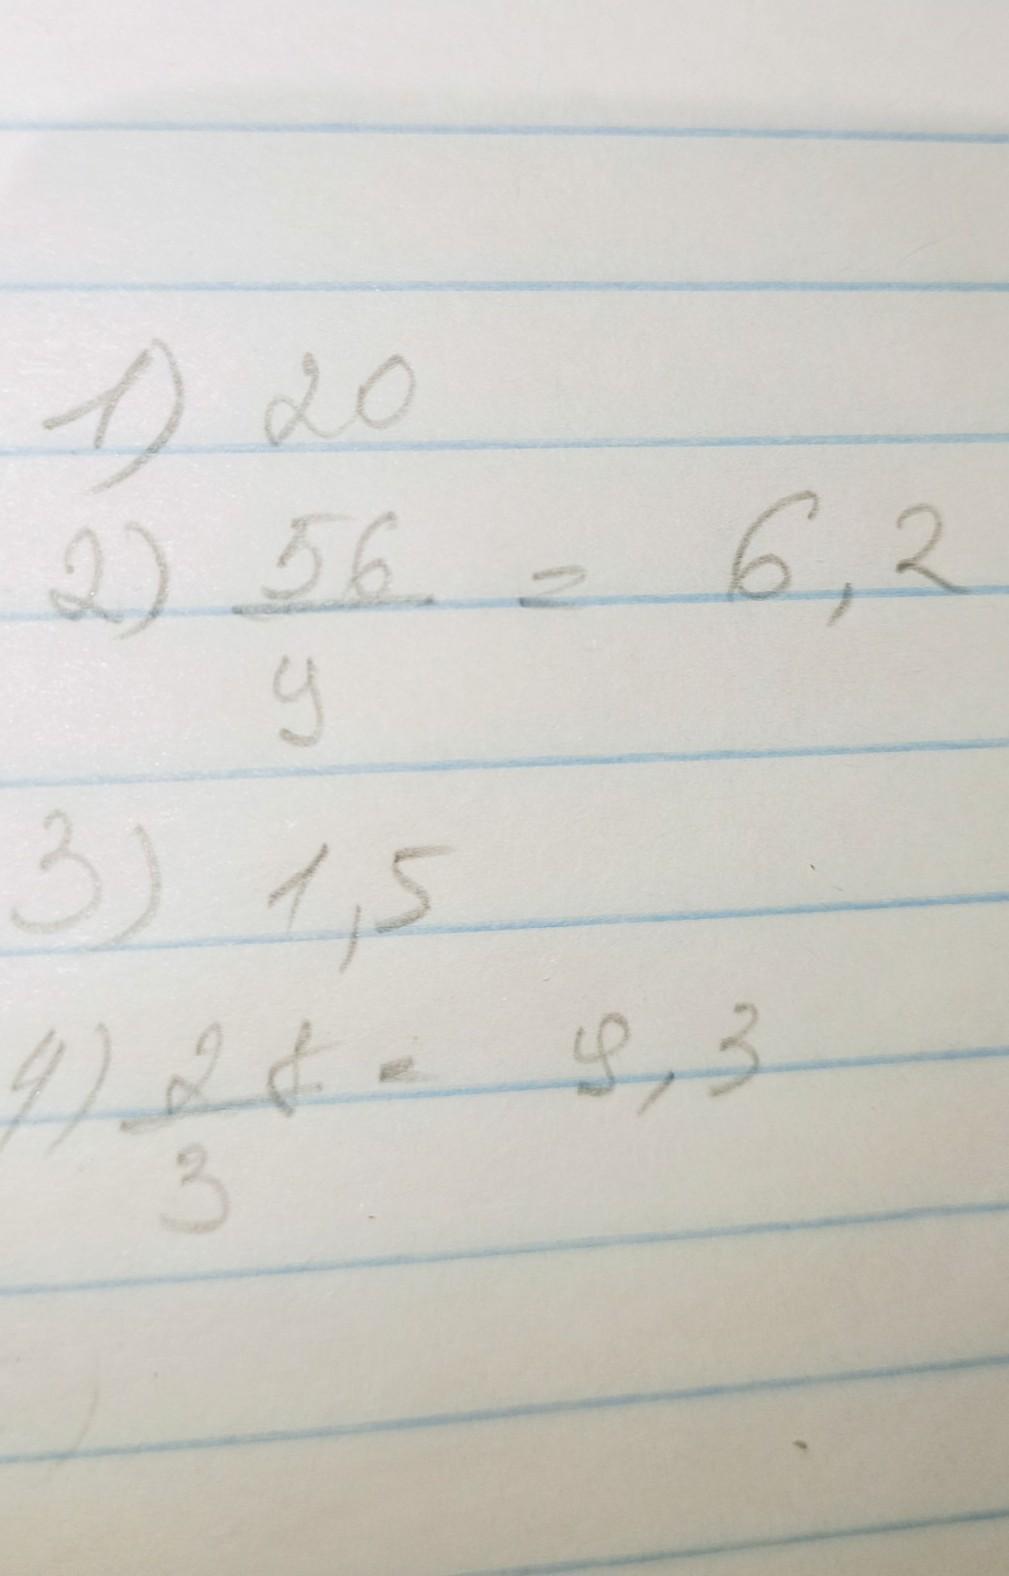 1) 20
2) 56/9 = 6,2
3) 1,5
4) 28/3 = 9,3